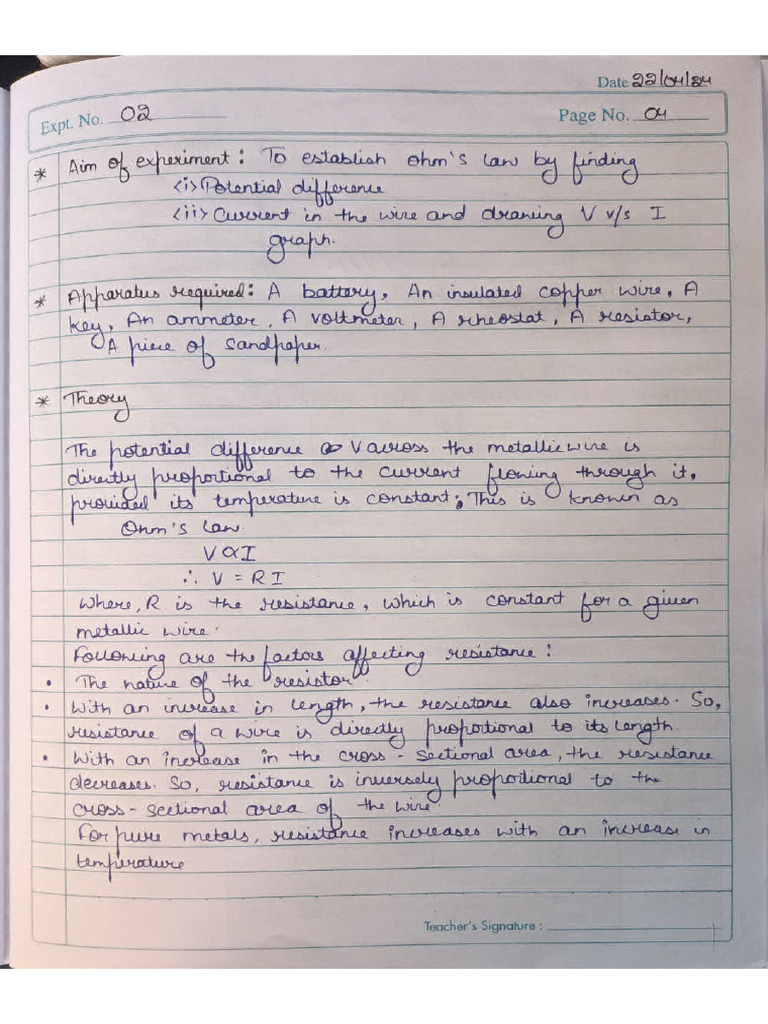 Date 22/04/24
Expt. No. 02
Page No. 04
* Aim of experiment : To establish ohm's law by finding
<i> Potential difference
<ii> Current in the wire and drawing V v/s I
graph.
* Apparatus required: A battery, An insulated copper wire, A
key, An ammeter, A voltmeter, A rheostat, A resistor,
A piece of sandpaper.
* Theory
The potential difference V across the metallic wire is
directly proportional to the current flowing through it,
provided its temperature is constant; This is known as
Ohm's law.
V ∝ I
∴ V = R I
Where, R is the resistance, which is constant for a given
metallic wire.
Following are the factors affecting resistance :
• The nature of the resistor.
• With an increase in length, the resistance also increases. So,
resistance of a wire is directly proportional to its length.
• With an increase in the cross - sectional area, the resistance
decreases. So, resistance is inversely proportional to the
cross - sectional area of the wire.
For pure metals, resistance increases with an increase in
temperature
Teacher's Signature :